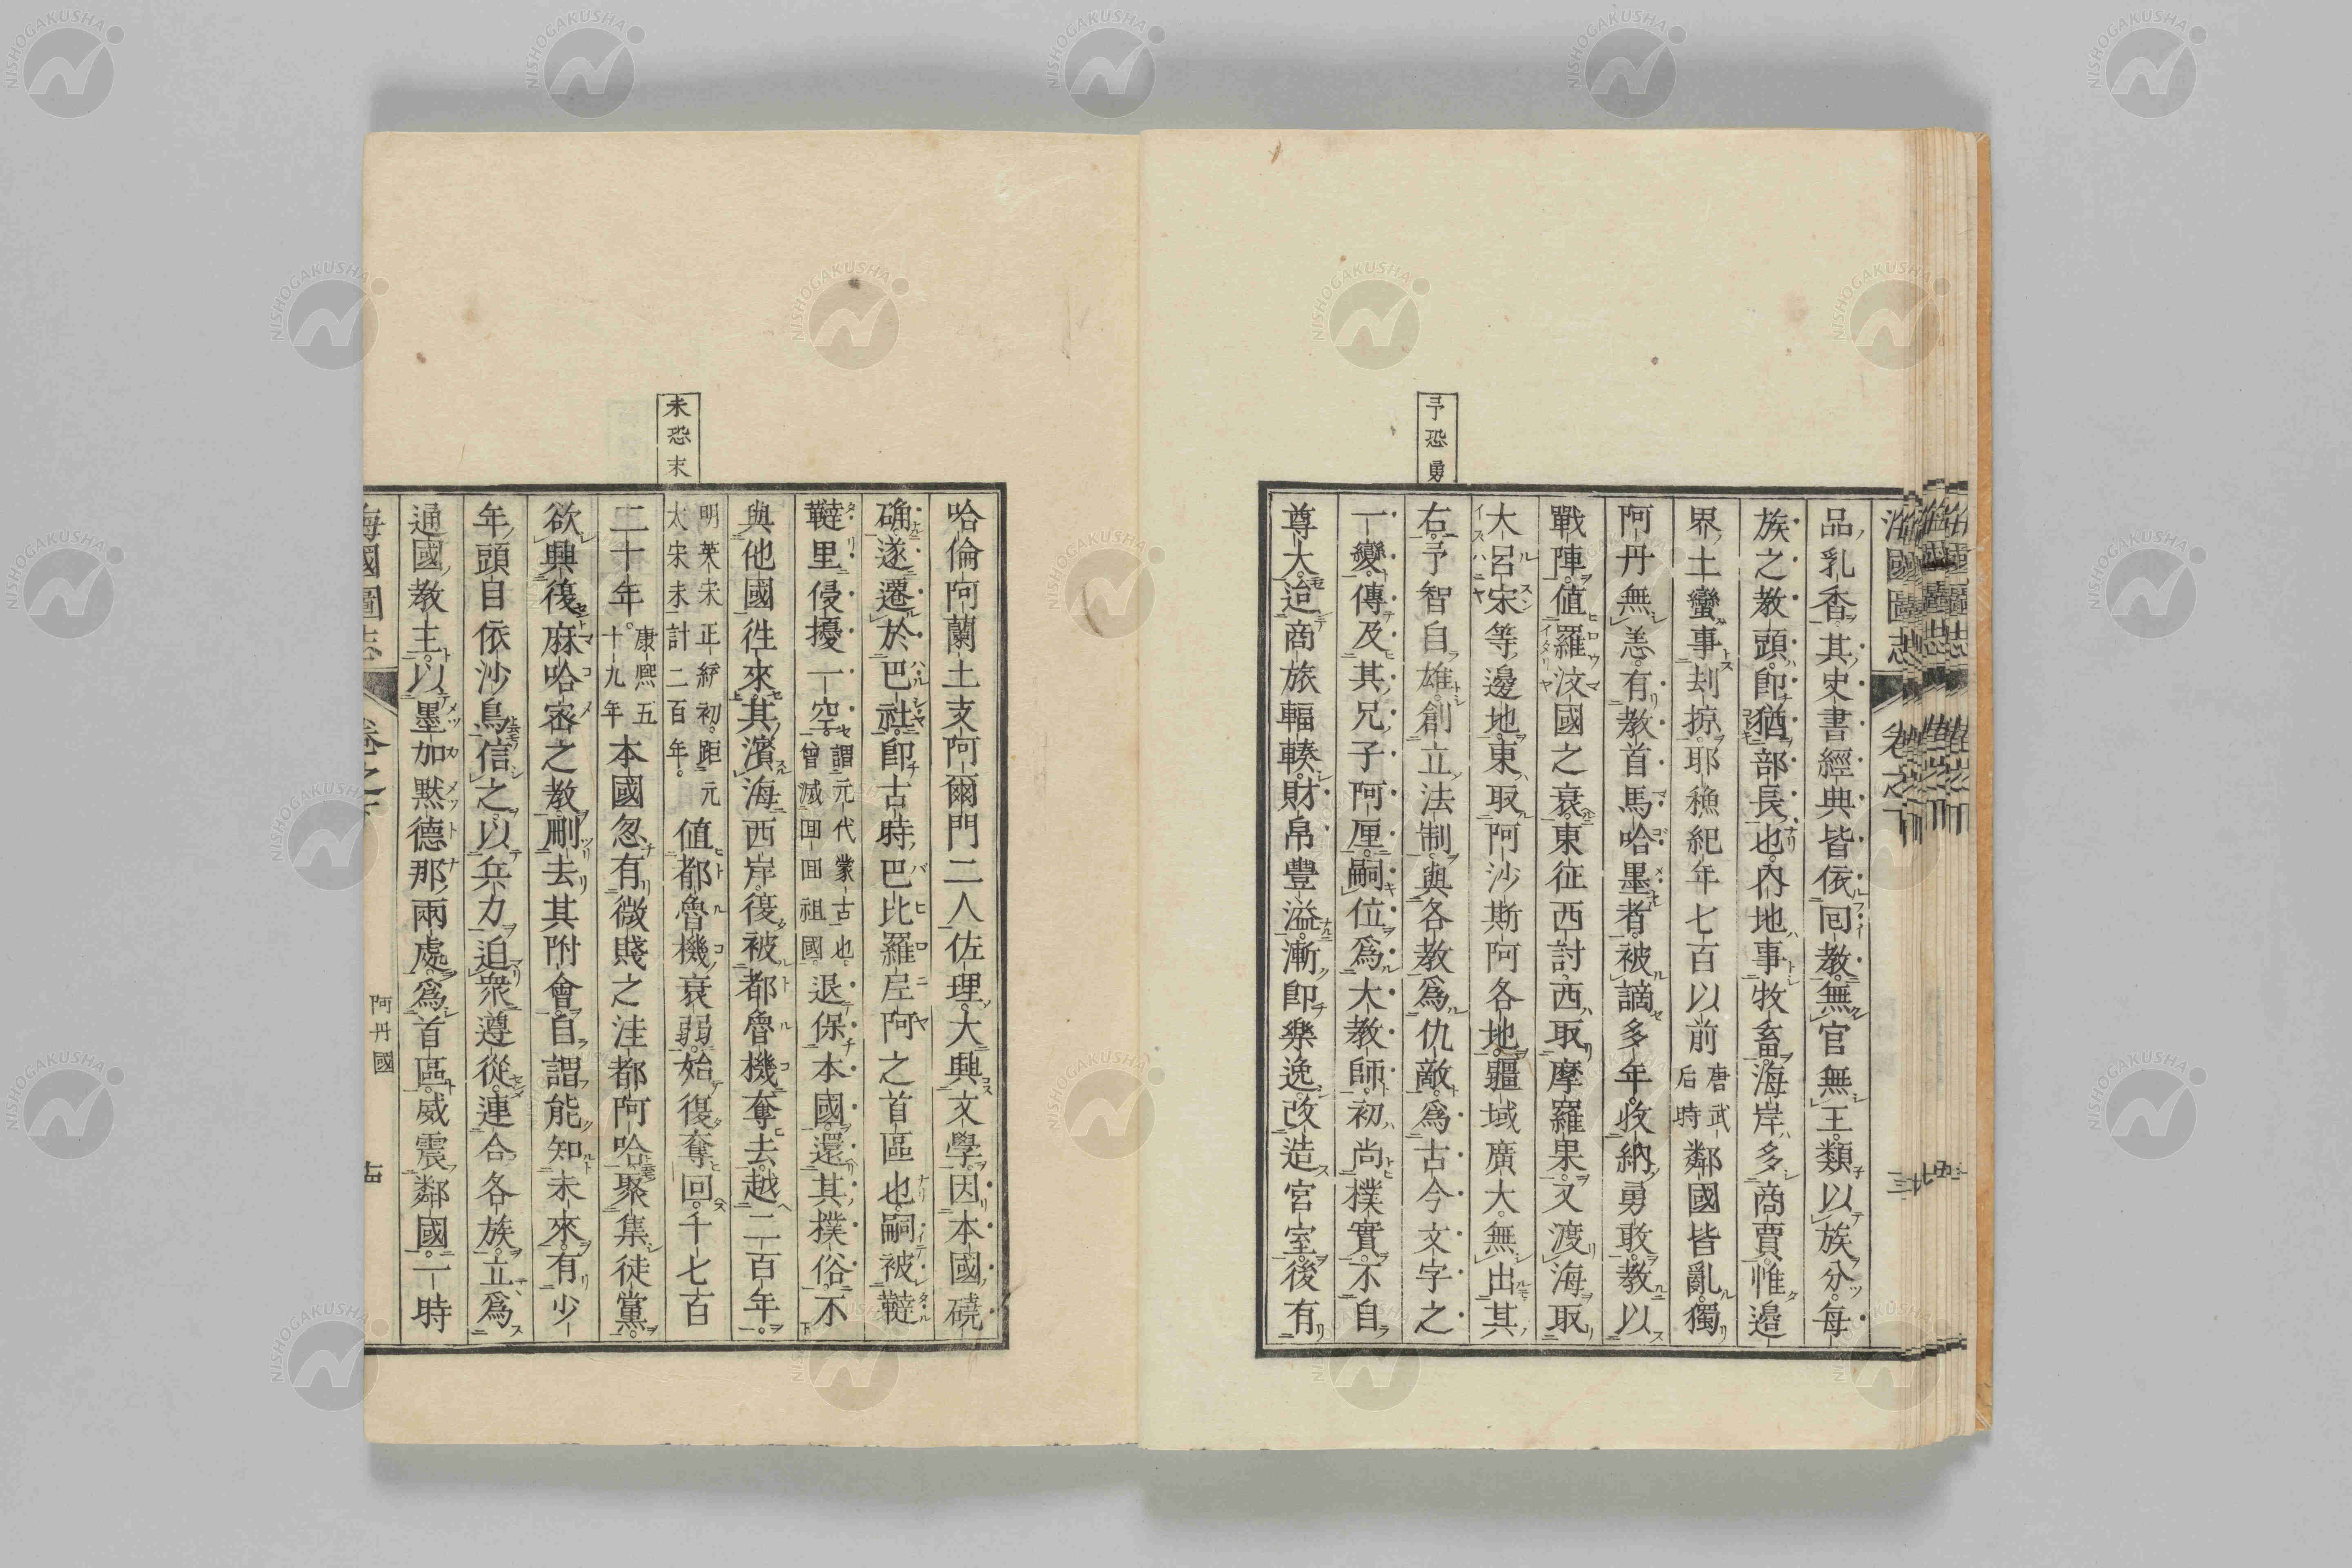 海國圖志
卷之
品乳香其史書經典皆依回教無官無王類以族分每
族之教頭卽猶部長也内地事牧畜海岸多商賈惟邉
界土蠻事刦掠耶穌紀年七百以前唐武后時鄰國皆亂獨
阿丹無恙有教首馬哈墨者被謫多年收納勇敢教以
戰陣值羅汶國之衰東征西討西取摩羅果又渡海取
大呂宋等邊地東取阿沙斯阿各地疆域廣大無出其
右予智自雄創立法制與各教爲仇敵爲古今文字之
予恐勇
一變傳及其兄子阿厘嗣位爲大教師初尚樸實不自
尊大迨商旅輻輳財帛豐溢漸卽樂逸改造宮室後有
哈倫阿蘭士支阿爾門二人佐理大興文學因本國磽
确遂遷於巴社卽古時巴比羅尼阿之首區也嗣被韃
韃里侵擾一空謂元代蒙古也曾滅回回祖國退保本國還其樸俗不
與他國徃來其濱海西岸復被都魯機奪去越二百年
明英宋正綂初距元太宋未計二百年值都魯機衰弱始復奪回千七百
未恐末
二十年康熙五十九年本國忽有微賤之洼都阿哈聚集徒黨
欲興復麻哈宻之教刪去其附會自謂能知未來有少
年頭自依沙鳥信之以兵力迫衆遵從連合各族立爲
通國教主以墨加黙德那兩處爲首區威震鄰國一時
海國圖志
卷之
阿丹國
NISHOGAKUSHA